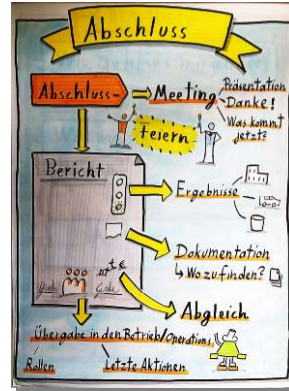 Abschluss
Abschluss-
Meeting
Präsentation
Danke!
Was kommt
jetzt?
Feiern
Bericht
Ergebnisse
Dokumentation
↳ Wo zu finden?
Abgleich
Übergabe in den Betrieb/Operations
Rollen
Letzte Aktionen